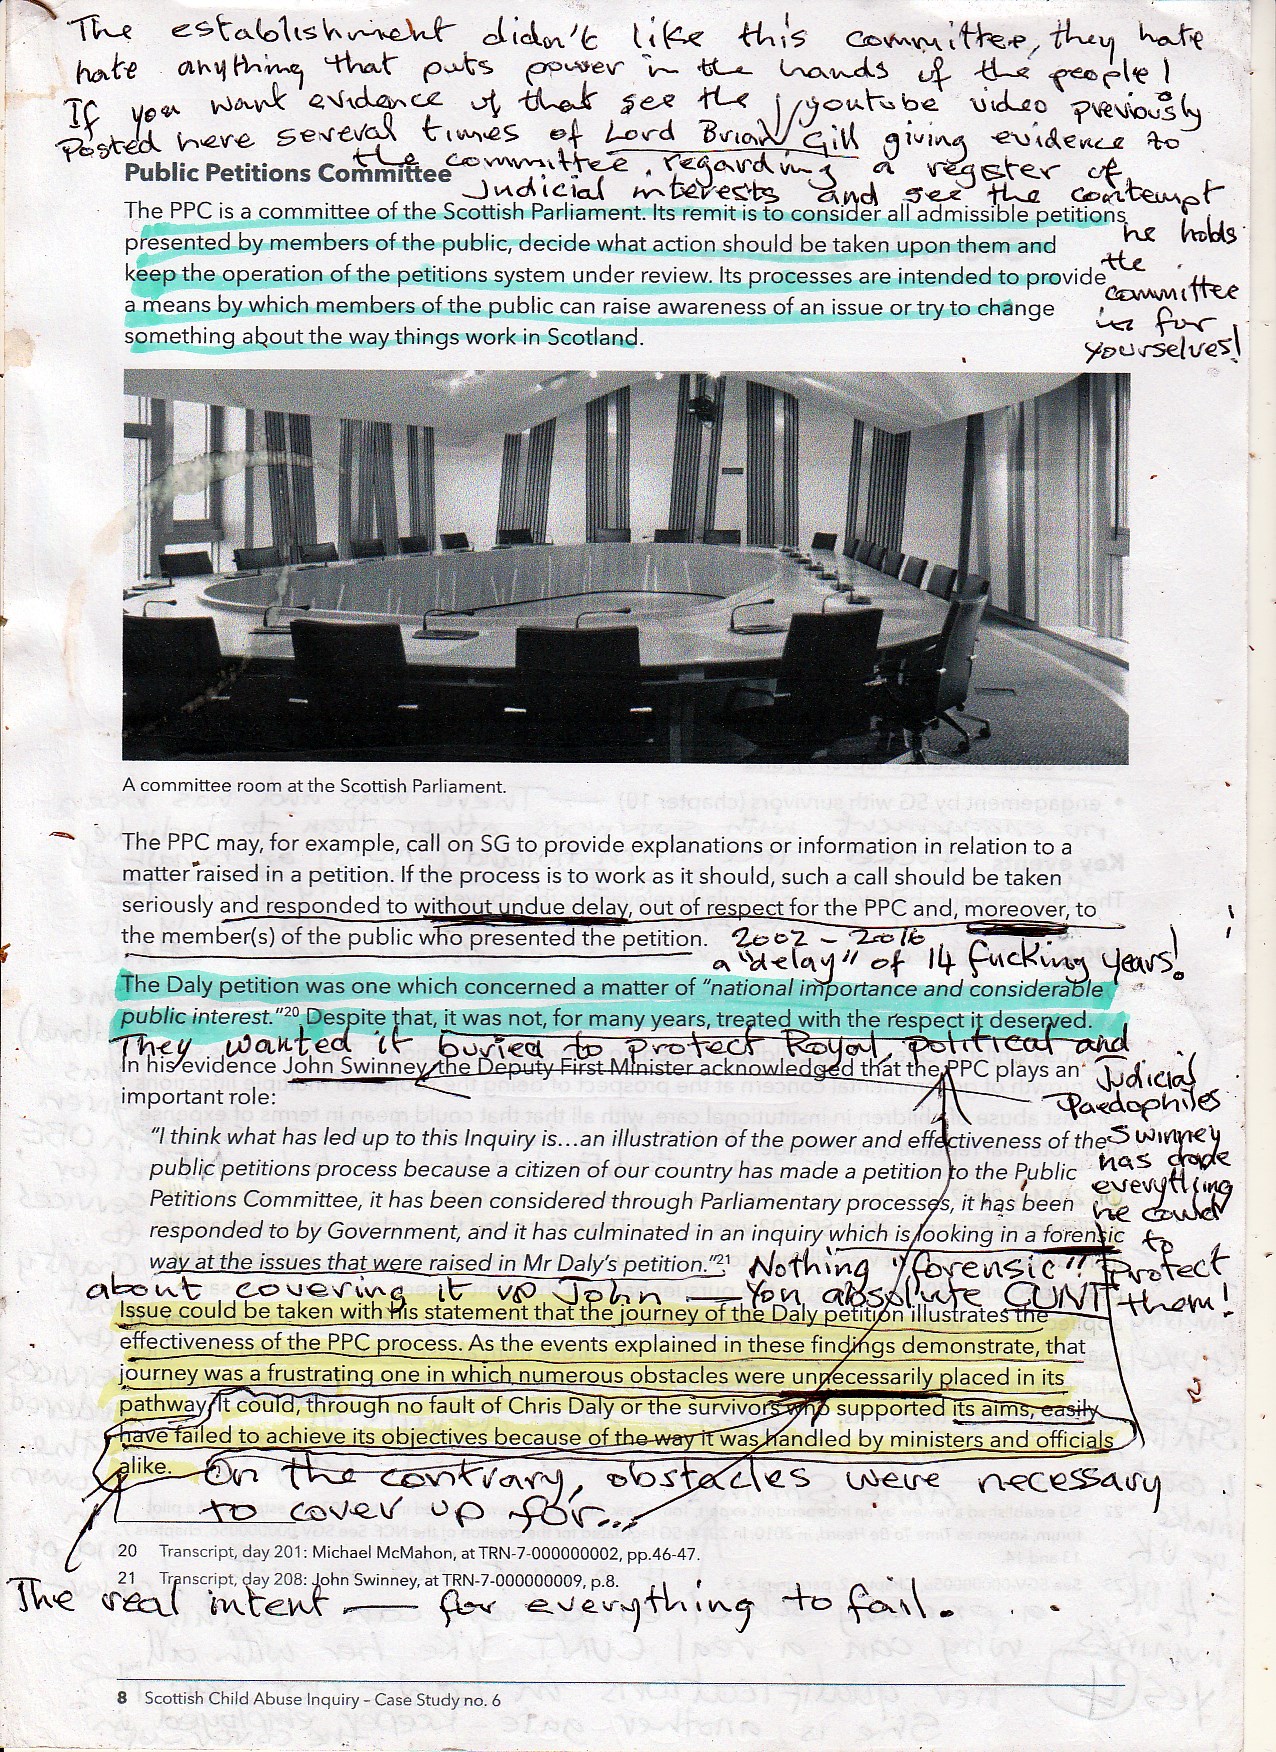 The establishment didn't like this committee, they hate
hate anything that puts power in the hands of the people!
If you want evidence of that see the youtube video previously
Posted here several times of Lord Brian Gill giving evidence to
the committee regarding a register of
Judicial interests and see the contempt
he holds
the
committee
in for
yourselves!
Public Petitions Committee
The PPC is a committee of the Scottish Parliament. Its remit is to consider all admissible petitions
presented by members of the public, decide what action should be taken upon them and
keep the operation of the petitions system under review. Its processes are intended to provide
a means by which members of the public can raise awareness of an issue or try to change
something about the way things work in Scotland.
A committee room at the Scottish Parliament.
The PPC may, for example, call on SG to provide explanations or information in relation to a
matter raised in a petition. If the process is to work as it should, such a call should be taken
seriously and responded to without undue delay, out of respect for the PPC and, moreover, to
the member(s) of the public who presented the petition.
2002 - 2016
a "delay" of 14 fucking years!
The Daly petition was one which concerned a matter of "national importance and considerable
public interest."20 Despite that, it was not, for many years, treated with the respect it deserved.
They wanted it buried to protect Royal, political and
Judicial
Paedophiles
In his evidence John Swinney, the Deputy First Minister acknowledged that the PPC plays an
important role:
"I think what has led up to this Inquiry is...an illustration of the power and effectiveness of the
public petitions process because a citizen of our country has made a petition to the Public
Petitions Committee, it has been considered through Parliamentary processes, it has been
responded to by Government, and it has culminated in an inquiry which is looking in a forensic
way at the issues that were raised in Mr Daly's petition."21
Swinney
has done
everything
he could
to
Protect
them!
Nothing "forensic"
about covering it up John — You absolute CUNT
Issue could be taken with his statement that the journey of the Daly petition illustrates the
effectiveness of the PPC process. As the events explained in these findings demonstrate, that
journey was a frustrating one in which numerous obstacles were unnecessarily placed in its
pathway. It could, through no fault of Chris Daly or the survivors who supported its aims, easily
have failed to achieve its objectives because of the way it was handled by ministers and officials
alike.
On the contrary, obstacles were necessary
to cover up for...
20 Transcript, day 201: Michael McMahon, at TRN-7-000000002, pp.46-47.
21 Transcript, day 208: John Swinney, at TRN-7-000000009, p.8.
The real intent — for everything to fail.
8 Scottish Child Abuse Inquiry – Case Study no. 6